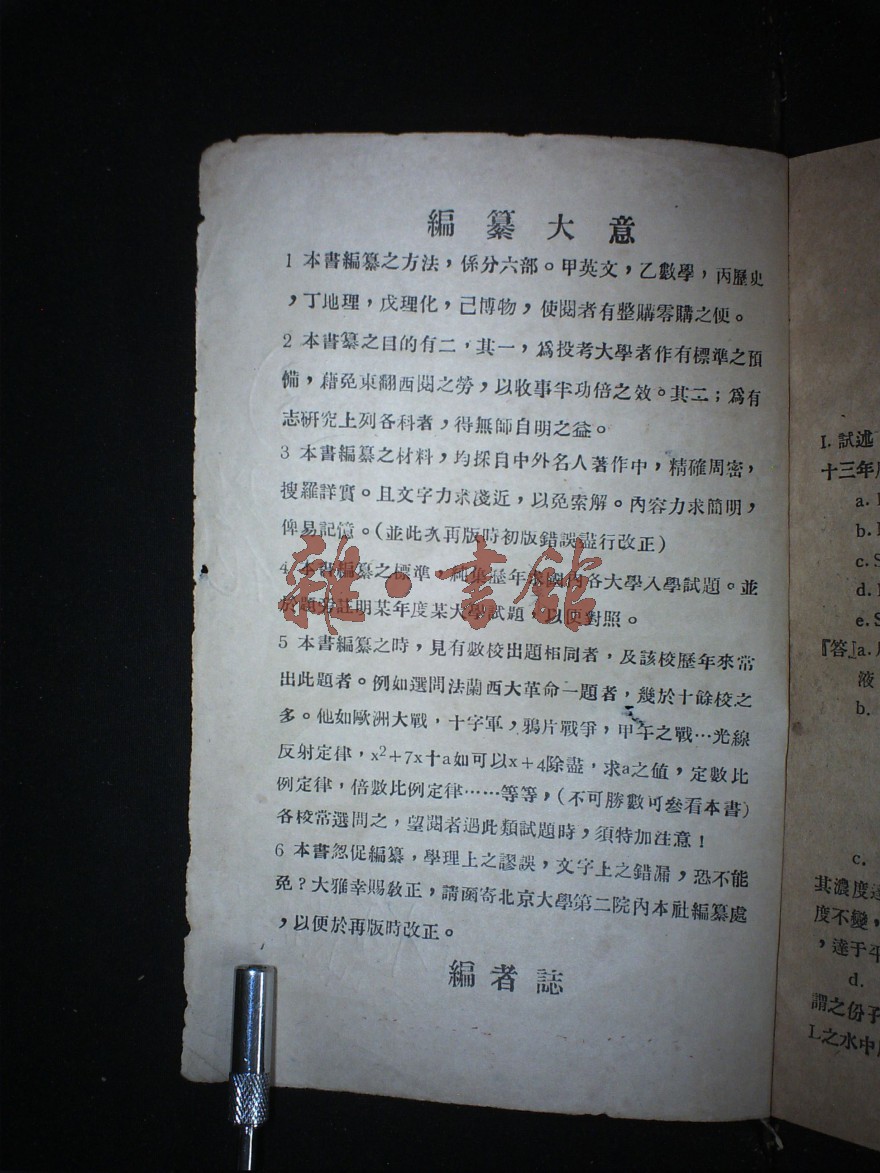 編纂大意
1 本書編纂之方法，係分六部。甲英文，乙數學，丙歷史
，丁地理，戊理化，己博物，使閱者有整購零購之便。
2 本書纂之目的有二，其一，爲投考大學者作有標準之預
備，藉免東翻西閱之勞，以收事半功倍之效。其二；爲有
志硏究上列各科者，得無師自明之益。
3 本書編纂之材料，均採自中外名人著作中，精確周密，
搜羅詳實。且文字力求淺近，以免索解。內容力求簡明，
俾易記憶。(並此次再版時初版錯誤盡行改正)
4 本書編纂之標準，純集歷年來國內各大學入學試題。並
於題旁註明某年度某大學試題，以便對照。
5 本書編纂之時，見有數校出題相同者，及該校歷年來常
出此題者。例如選問法蘭西大革命一題者，幾於十餘校之
多。他如歐洲大戰，十字軍，鴉片戰爭，甲午之戰…光線
反射定律，x²+7x十a如可以x+4除盡，求a之值，定數比
例定律，倍數比例定律……等等，(不可勝數可參看本書)
各校常選問之，望閱者遇此類試題時，須特加注意！
6 本書忽促編纂，學理上之謬誤，文字上之錯漏，恐不能
免？大雅幸賜敎正，請函寄北京大學第二院內本社編纂處
，以便於再版時改正。
編者誌
雜·書館
I. 試述
十三年度
a.
b.
c. S
d.
e. S
『答』a.
液
b.
c.
其濃度達
度不變，
，達于平
d.
謂之份子
L之水中